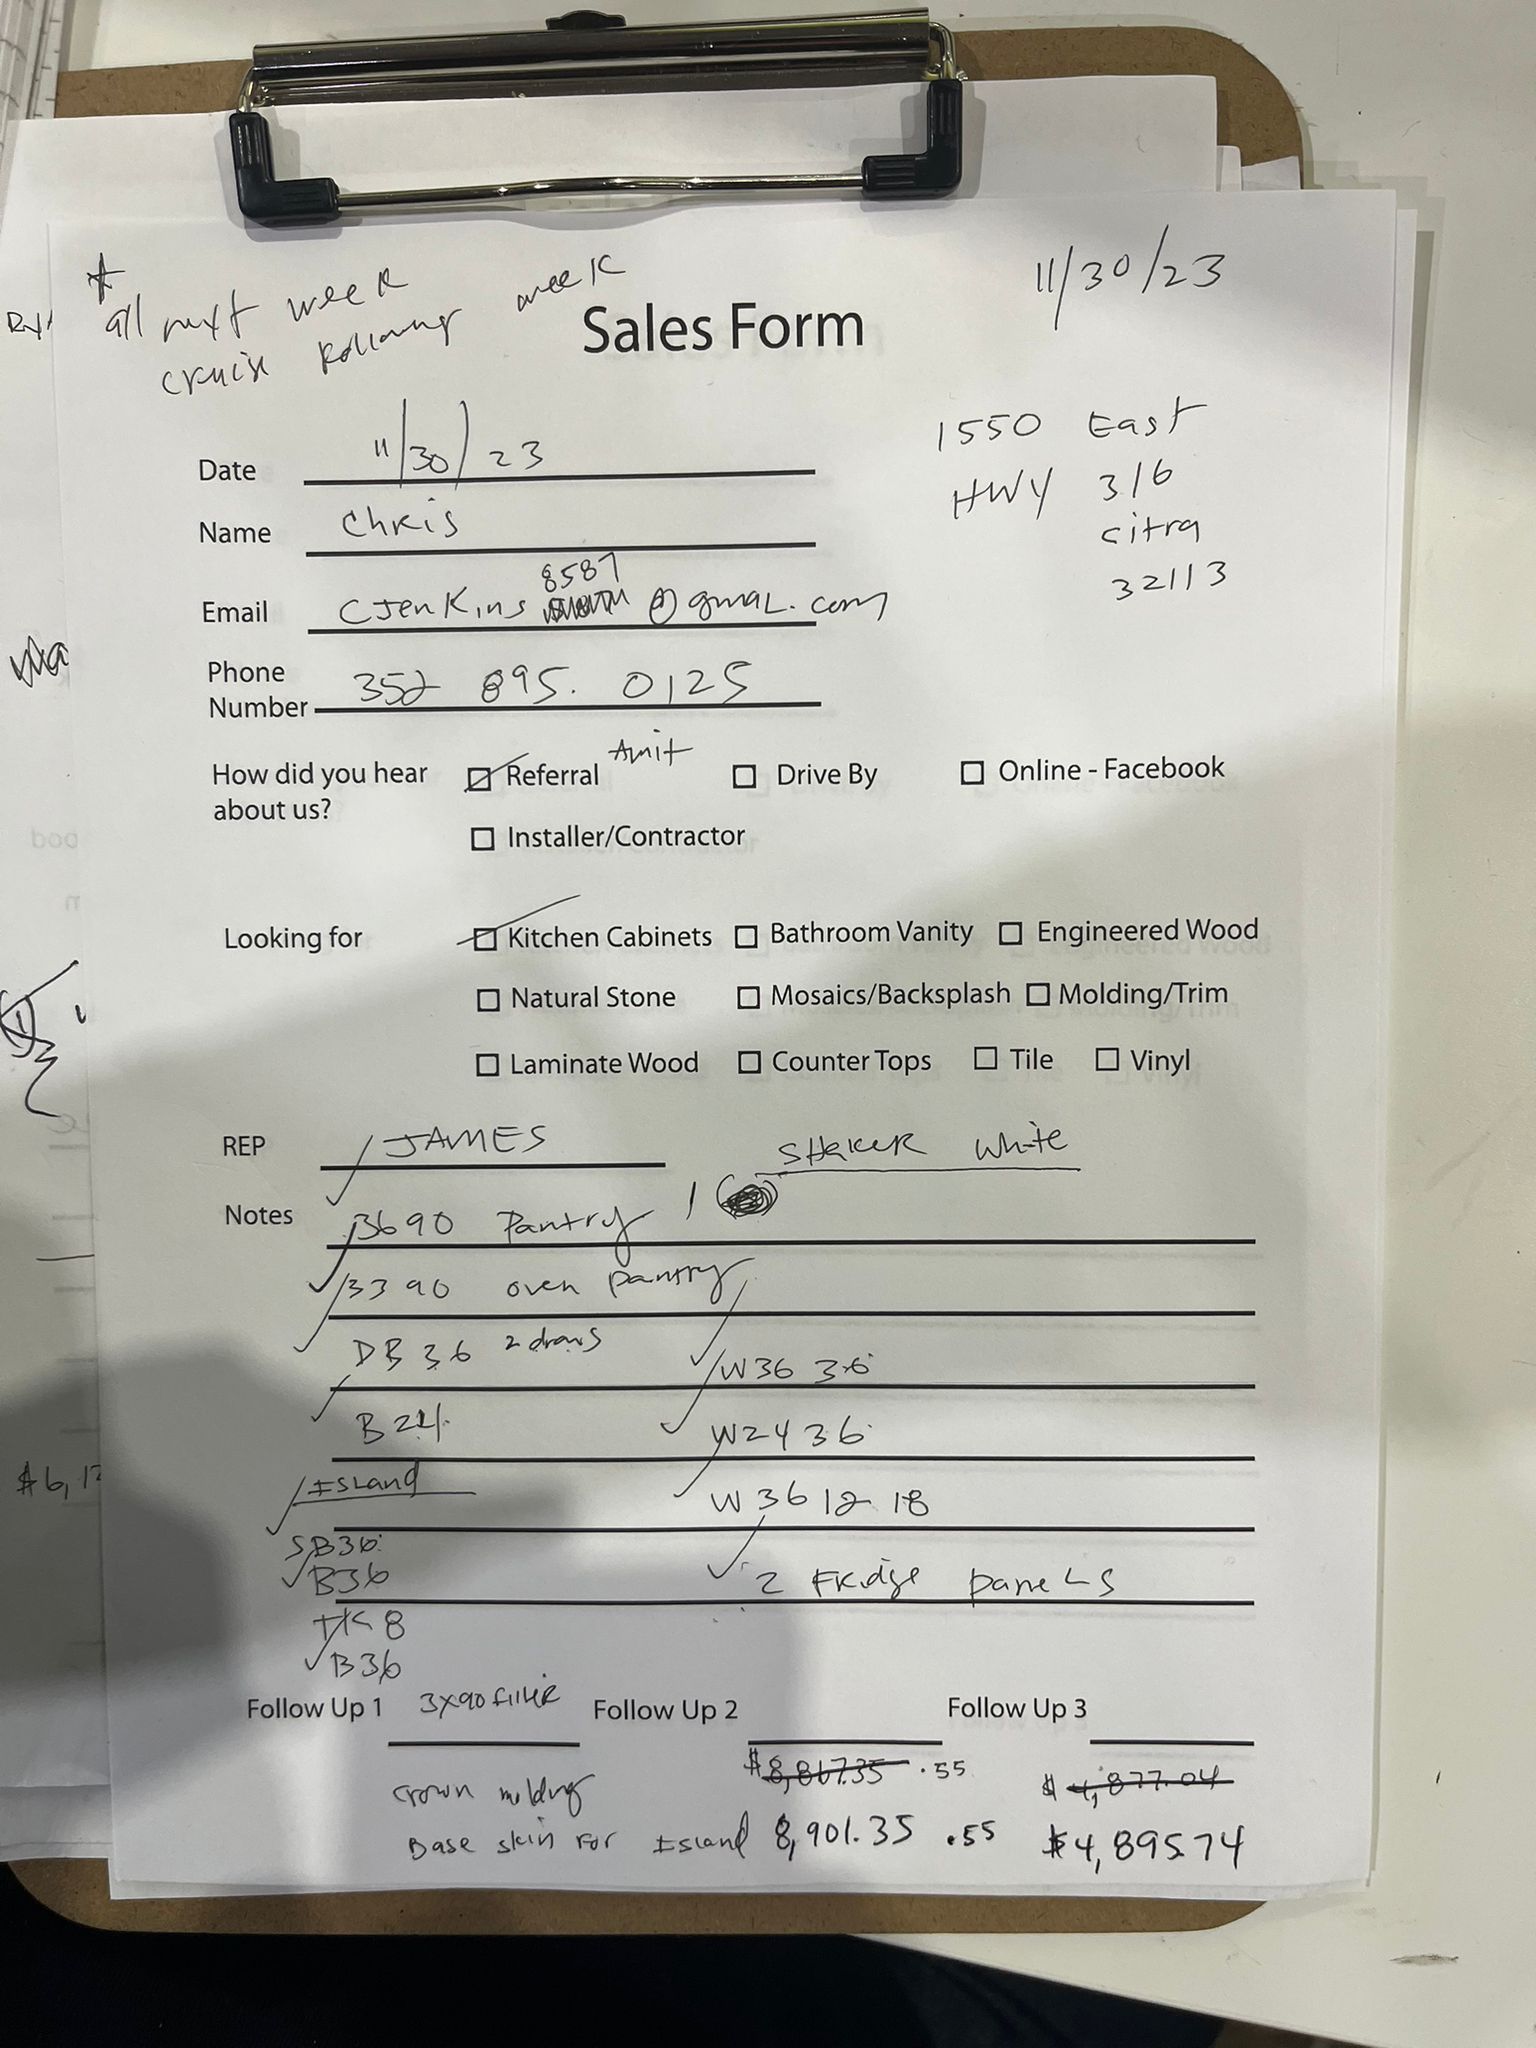 * all next week
cruise following week
11/30/23
Sales Form
1550 East
HWY 316
Citra
32113
Date 11/30/23
Name Chris
Email CJenkins 8587 @gmaL.com
Phone Number 352 895. 0125
How did you hear about us?
Referral Amit
Drive By
Online - Facebook
Installer/Contractor
Looking for
Kitchen Cabinets
Bathroom Vanity
Engineered Wood
Natural Stone
Mosaics/Backsplash
Molding/Trim
Laminate Wood
Counter Tops
Tile
Vinyl
REP JAMES
SHAKER White
Notes
3690 Pantry 1
3390 oven pantry
DB36 2 draws
W36 36
B24
W2436
Island
W361218
SB36
B36
2 Fridge paneLs
TK8
B36
Follow Up 1 3x90 filler
Follow Up 2
Follow Up 3
$8,867.35 .55 $4,877.04
crown molding
Base skin For Island 8,901.35 .55 $4,895.74
$6,12